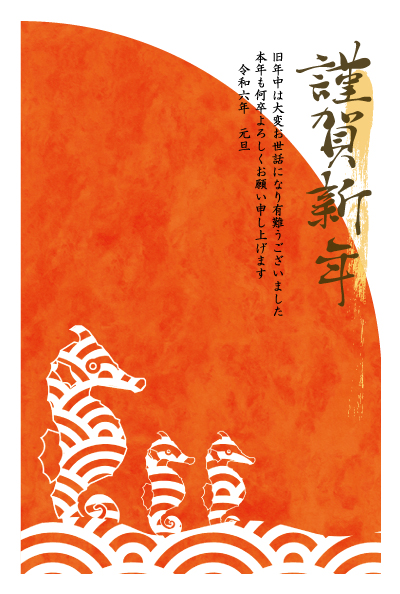 謹賀新年
旧年中は大変お世話になり有難うございました
本年も何卒よろしくお願い申し上げます
令和六年 元旦